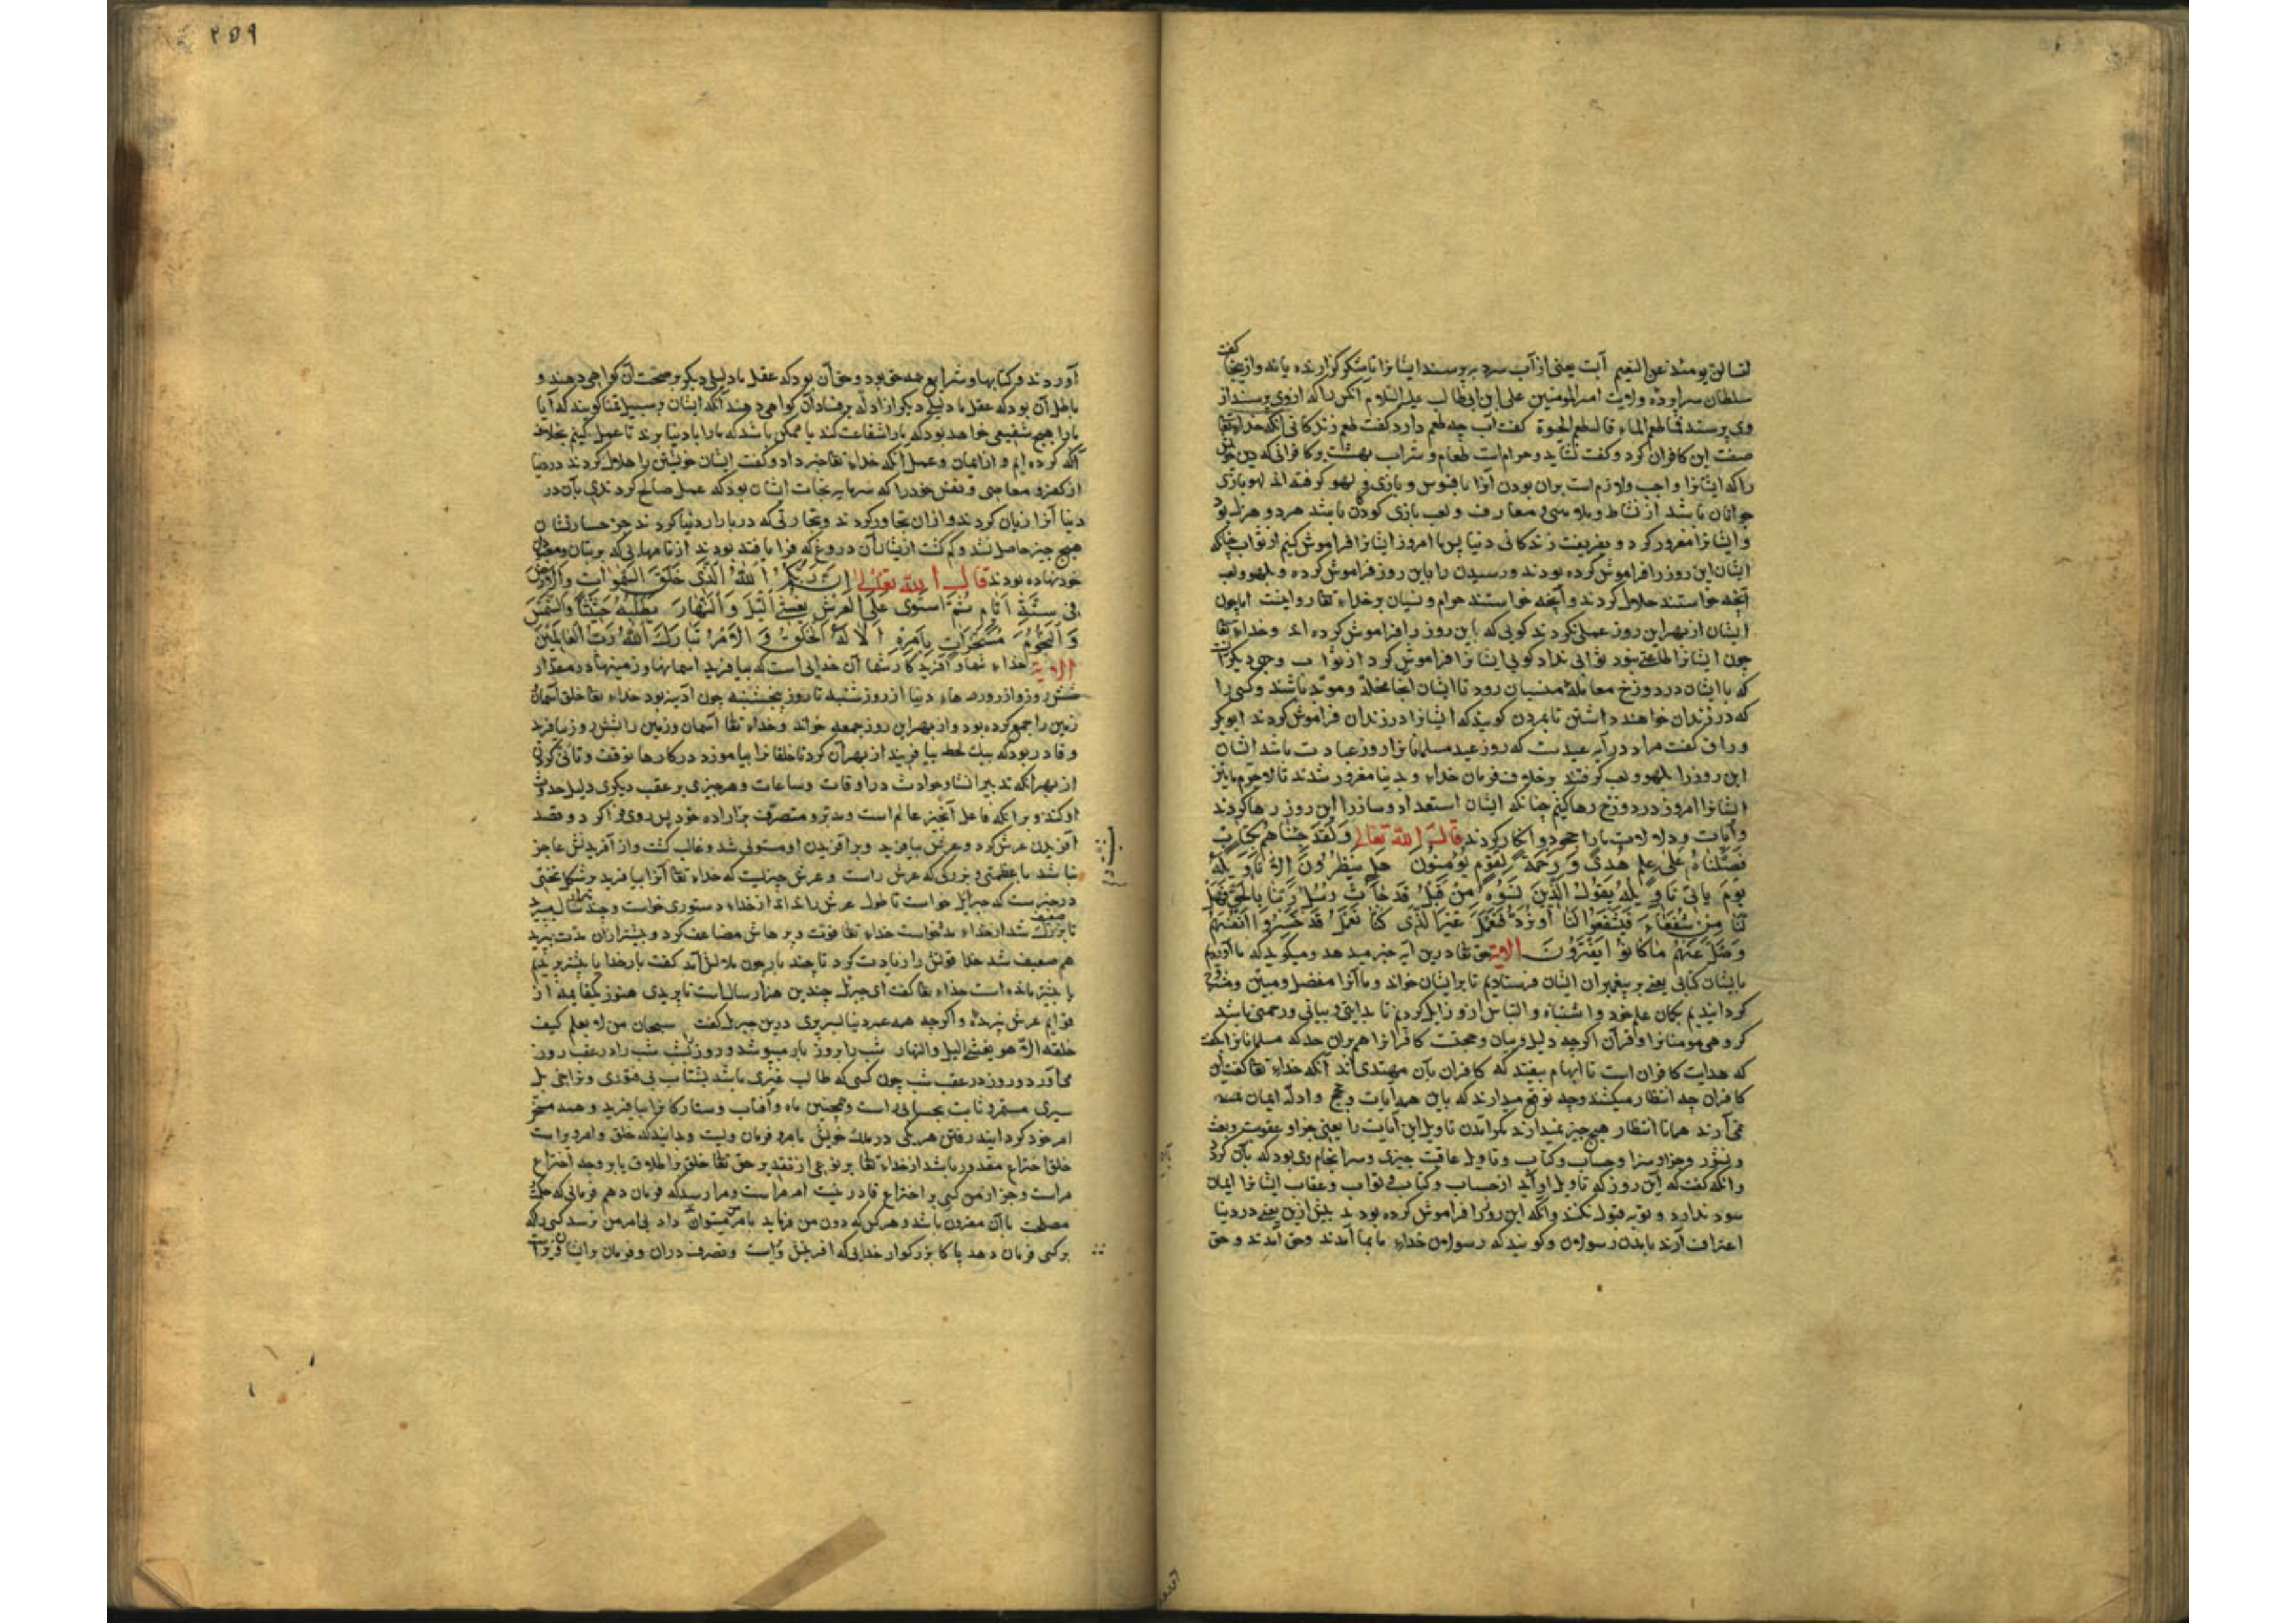 لتسالن یومئذ عن النعیم آیت یعنی از آب سرد بپرسند ایشانرا تا شکر گزارنده یاند و از ینجا گفت
سلطان سراپرده ولایت امیر المومنین علی ابن ابی طالب علیه السلام آنکس را که از وی پرسند از
وی پرسند فما طعم الماء قال طعم الحیوة گفت آب چه طعم دارد گفت طعم زندکانی آنکه خداء تعا
صفت این کافران کرد و گفت نشاید و حرام است طعام و شراب بهشت بر کافرانی که دین خویش
را که ایشانرا واجب و لازم است بران بودن آنرا بافسوس و بازی و لهو گرفته اند لهو بازی
جوانان باشد از نشاط و ملاهی و معازف و لعب بازی کودکان باشد هر دو هزل بود
و ایشانرا مغرور کرد و بفریفت زندکانی دنیا پس ما امروز ایشانرا فراموش کنیم از ثواب چنانکه
ایشان این روز را فراموش کرده بودند و رسیدن را باین روز فراموش کرده و بلهو و لعب
آنچه خواستند حلال کردند و آنچه خواستند حرام و نسیان بر خداء تعا روا نیست اما چون
ایشان از بهر این روز عملی نکردند گویی که باین روز را فراموش کرده اند و خداء تعا
چون ایشانرا طاعتی نبود ثوابی نداد گویی ایشانرا فراموش کرد از ثواب وجهی دیکر آنست
که با ایشان در دوزخ معامله منسیان رود تا ایشان آنجا مخلد و موبد باشند و کسی را
که در زندان خواهند داشتن تا بمردن کویند که ایشانرا در زندان فراموش کردند ابو بکر
وراق گفت مراد در آیه عیدست که روز عید مسلمانانرا روز عبادت باشد ایشان
این روز را بلهو و لعب گرفتند بر خلاف فرمان خداء و بدنیا مغرور شدند تا لاجرم ما نیز
ایشانرا امروز در دوزخ رها کنیم چنانکه ایشان استعداد و ساز را این روز رها کردند
و آیات و دلالات ما را جحود و انکار کردند قال الله تعالی وَلَقَدْ جِئْنَاهُمْ بِكِتَابٍ
فَصَّلْنَاهُ عَلَى عِلْمٍ هُدًى وَرَحْمَةً لِقَوْمٍ يُؤْمِنُونَ هَلْ يَنْظُرُونَ إِلَّا تَأْوِيلَهُ
يَوْمَ يَأْتِي تَأْوِيلُهُ يَقُولُ الَّذِينَ نَسُوهُ مِنْ قَبْلُ قَدْ جَاءَتْ رُسُلُ رَبِّنَا بِالْحَقِّ فَهَلْ
لَنَا مِنْ شُفَعَاءَ فَيَشْفَعُوا لَنَا أَوْ نُرَدُّ فَنَعْمَلَ غَيْرَ الَّذِي كُنَّا نَعْمَلُ قَدْ خَسِرُوا أَنْفُسَهُمْ
وَضَلَّ عَنْهُمْ مَا كَانُوا يَفْتَرُونَ الایة حق تعا درین آیه خبر میدهد و میکوید که ما آوردیم
بایشان کتابی یعنی بر پیغمبران ایشان فرستادیم تا بر ایشان خواند و ما آنرا مفصل و مبین و مشروح
کردانیدیم بکمان علم خود و اشتباه و التباس ازو زایل کردیم تا هدایتی و بیانی و رحمتی باشد
گروهی مومنانرا و قرآن اگرچه دلیل و بیان و حجتست کافرانرا هم بران حد که مسلمانانرا گفت
که هدایت کافران است تا ایهام نیفتد که کافران بآن مهتدی اند آنکه خداء تعا گفت این
کافران چه انتظار میکنند و چه توقع میدارند که باین همه آیات و حجج و ادله ایمان
نمی آرند همانا انتظار هیچ چیز نمیدارند مکر آمدن تاویل این آیات را یعنی جزا و عقوبت و بعث
و نشور و جزا و سزا و حساب و کتاب و تاویل عاقبت چیزی و سرانجام وی بود که بآن کردد
و آنکه گفت که آن روز که تاویل او آید از حساب و کتاب و ثواب و عقاب ایشانرا ایمان
سود ندارد و توبه قبول نکنند و آنکه این روز را فراموش کرده بودند پیش ازین یعنی در دنیا
اعتراف آرند بآمدن رسولان و کویند که رسولان خداء بما آمدند و حق آمدند و حق
۲۵۹
آوردند و کتابها و شرایع همه حق بود و حق آن بود که عقل یا دلیلی دیکر بر صحت آن گواهی دهند و
باطل آن بود که عقل یا دلیلی دیکر از ادله بر فساد آن گواهی دهند آنکه ایشان بر سبیل تمنا کویند که آیا
ما را هیچ شفیعی خواهد بود که ما را شفاعت کند یا ممکن باشد که ما را با دنیا برند تا عمل کنیم بخلاف
آنکه کرده ایم و از ایمان و عمل آنکه خداء تعا خبر داد و گفت ایشان خویشتن را هلاک کردند در رضا
از کفر و معاصی و نفس خود را که سرمایه نجات ایشان بود که عمل صالح کردندی بآن در
دنیا آنرا زیان کردند و ازان تجاوز کردند و تجارتی که در بازار دنیا کردند جز خسارتشان
هیچ چیز حاصل نشد و کم گشت از ایشان آن دروغ که فرا بافته بودند از نامهایی که بر بتان و معبودان
خود نهاده بودند قال الله تعالی إِنَّ رَبَّكُمُ اللَّهُ الَّذِي خَلَقَ السَّمَوَاتِ وَالْأَرْضَ
فِي سِتَّةِ أَيَّامٍ ثُمَّ اسْتَوَى عَلَى الْعَرْشِ يُغْشِي اللَّيْلَ وَالنَّهَارَ يَطْلُبُهُ حَثِيثًا وَالشَّمْسَ
وَالنُّجُومَ مُسَخَّرَاتٍ بِأَمْرِهِ أَلَا لَهُ الْخَلْقُ وَالْأَمْرُ تَبَارَكَ اللَّهُ رَبُّ الْعَالَمِينَ
الایة خداء شما و آفریدکار شما آن خدایی است که بیافرید آسمانها و زمینها در مقدار
شش روز از روزهاء دنیا از روز شنبه تا روز پنجشنبه چون آدینه بود خداء تعا خلق آسمان
زمین را جمع کرده بود و از بهر این روز جمعه خواند و خداء تعا آسمان و زمین را بشش روز بیافرید
و قادر بود که بیک لحظه بیافریند از بهر آن کرد تا خلقانرا بیاموزد در کارها توقف و تأنی کردن
از بهر آنکه تدبیر انشاء حوادث در اوقات و ساعات و هر چیزی بر عقب دیکری دلیل حدوث
او کند و بر آنکه فاعل آنچیز عالم است و مدبر و متصرفست بر اراده خود پس روی فرا کرد و قصد
آفریدن عرش کرد و عرش بیافرید و بر آفریدن او مستولی شد و غالب گشت و از آفریدنش عاجز
نباشد با عظمتی و بزرگی که عرش راست و عرش چیزیست که خداء تعا آنرا بیافرید بر شکل تختی
در خبرست که جبرائیل خواست تا طول عرش را بداند از خداء دستوری خواست و چند هزار سال میپرید
تا ضعیف شد از خداء مدد خواست خداء تعا قوتت و پرهاش مضاعف کرد و بیشتر ازان مدت بپرید
هم ضعیف شد خدا قوتش را زیادت کرد تا چند بار چون ملالش آمد گفت بار خدایا بیشتر بریدم
یا بیشتر مانده است خداء تعا گفت ای جبرئیل چندین هزار سالست تا پریدی هنوز یکقایمه از
قوایم عرش نپریده و اگرچه همه عمر دنیا بپری درین جبرئیل گفت سبحان من لا یعلم کیف
خلقه الا هو یغشی اللیل والنهار شب را بروز باز میپوشد و روز بشب شب را در عقب روز
می آورد و روز در عقب شب چون کسی که طالب غیری باشد بشتاب بی فتوری و تراخی بل
سیری مستمر و ثابت بحسابی راست و همچنین ماه و آفتاب و ستارکانرا بیافرید و همه مسخر
امر خود کردانید رفتن هریکی در فلک خویش بامر و فرمان ویست و بدانید که خلق و امر او راست
خلق اختراع مقدور باشد از خداء تعا بر نوعی از تقدیر حق تعا خلق بر اطلاق یا بر وجه اختراع
مراست و جز از من کسی بر اختراع قادر نیست امر مراست و مرا رسد که فرمان دهم فرمانی که حکمت
مصلحت با آن مقرون باشد و هر کس که دون من فرماید بامر من میتوان داد بی امر من نرسد کسی را که
بر کسی فرمان دهد پاکا بزرکوار خدایی که آفرینش وراست و تصرف دران و فرمان بر ایشان وراست